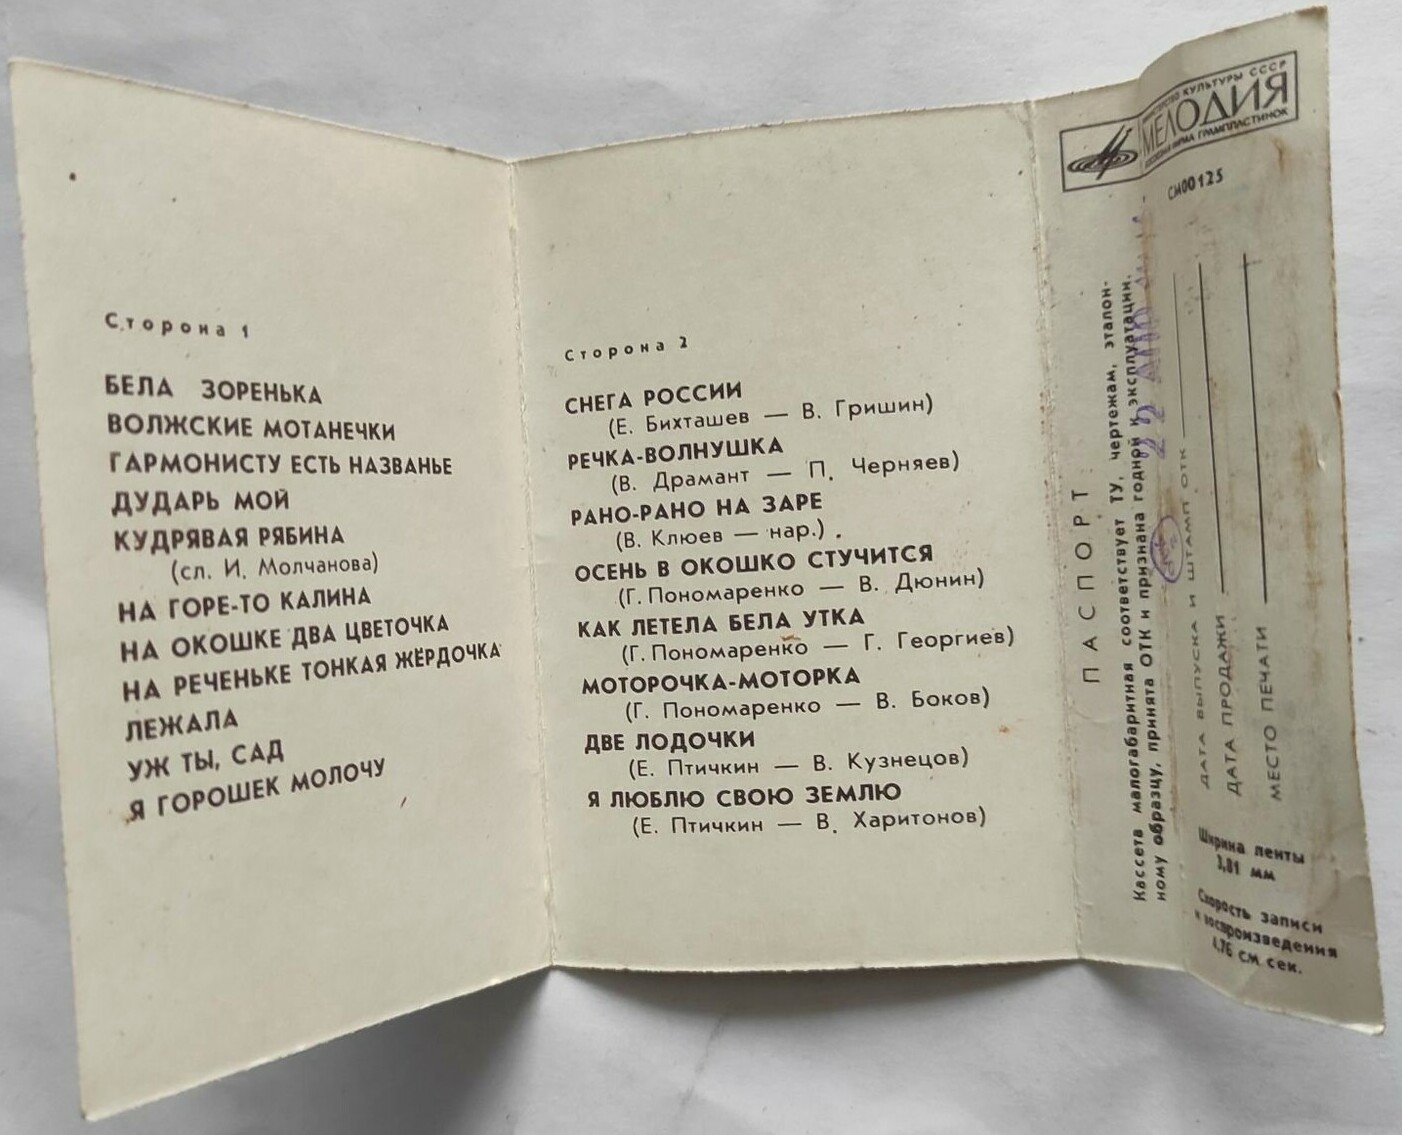 Сторона 1
БЕЛА ЗОРЕНЬКА
ВОЛЖСКИЕ МОТАНЕЧКИ
ГАРМОНИСТУ ЕСТЬ НАЗВАНЬЕ
ДУДАРЬ МОЙ
КУДРЯВАЯ РЯБИНА
(сл. И. Молчанова)
НА ГОРЕ-ТО КАЛИНА
НА ОКОШКЕ ДВА ЦВЕТОЧКА
НА РЕЧЕНЬКЕ ТОНКАЯ ЖЁРДОЧКА
ЛЕЖАЛА
УЖ ТЫ, САД
Я ГОРОШЕК МОЛОЧУ
Сторона 2
СНЕГА РОССИИ
(Е. Бихташев — В. Гришин)
РЕЧКА-ВОЛНУШКА
(В. Драмант — П. Черняев)
РАНО-РАНО НА ЗАРЕ
(В. Клюев — нар.)
ОСЕНЬ В ОКОШКО СТУЧИТСЯ
(Г. Пономаренко — В. Дюнин)
КАК ЛЕТЕЛА БЕЛА УТКА
(Г. Пономаренко — Г. Георгиев)
МОТОРОЧКА-МОТОРКА
(Г. Пономаренко — В. Боков)
ДВЕ ЛОДОЧКИ
(Е. Птичкин — В. Кузнецов)
Я ЛЮБЛЮ СВОЮ ЗЕМЛЮ
(Е. Птичкин — В. Харитонов)
МИНИСТЕРСТВО КУЛЬТУРЫ СССР
МЕЛОДИЯ
ВСЕСОЮЗНАЯ ФИРМА ГРАМПЛАСТИНОК
СМ00125
ПАСПОРТ
Кассета малогабаритная соответствует ТУ, чертежам, эталон-
ному образцу, принята ОТК и признана годной к эксплуатации.
ДАТА ВЫПУСКА И ШТАМП ОТК
22 АПР
ДАТА ПРОДАЖИ
МЕСТО ПЕЧАТИ
Ширина ленты
3,81 мм
Скорость записи
и воспроизведения
4,76 см сек.